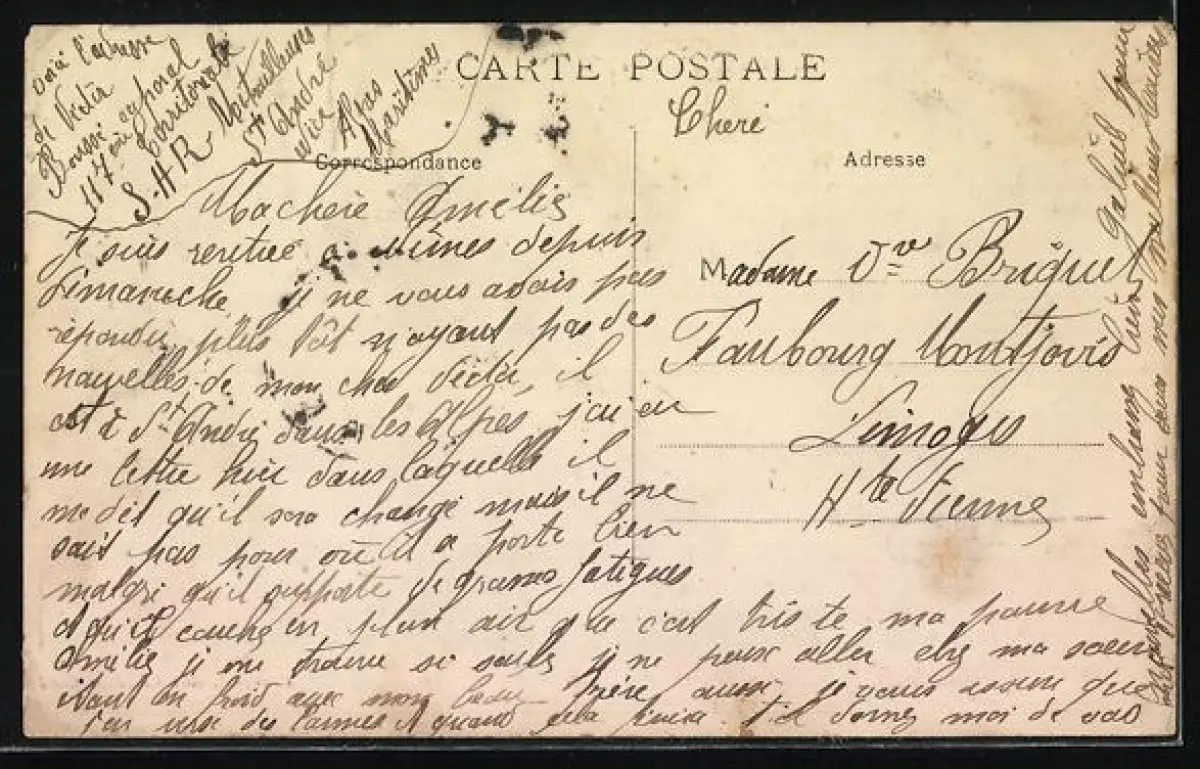 voici l'adresse
de Victor
Bonsoi caporal
117 territoriale
S-H-R Mitrailleuses
St André
Nice Alpes
Maritimes
CARTE POSTALE
Cheré
Correspondance
Adresse
Ma cheré Emélie
Je suis rentrée a Nimes depuis
Dimanche, je ne vous avais pas
répondu plus tôt n'ayant pas des
nouvelles de mon cher Victor, il
est à St André dans les Alpes, j'ai eu
une lettre hier dans laquelle il
me dit qu'il sera changé mais il ne
sait pas pour où il a porte bien
malgré qu'il supporte de grands fatigues
et qu'il couche en plein air que c'est triste ma pauvre
Emélie je me trouve si seule je ne peux aller chez ma soeur
étant en froid avec mon beau frère aussi je vous assure que
j'en verse des larmes et quand cela finira t-il donnez moi de vos
nouvelles embrassez bien Gabriel pour
moi recevez pour vous meilleurs
Madame Vve Briquet
Faubourg Montjovis
Limoges
Hte Vienne